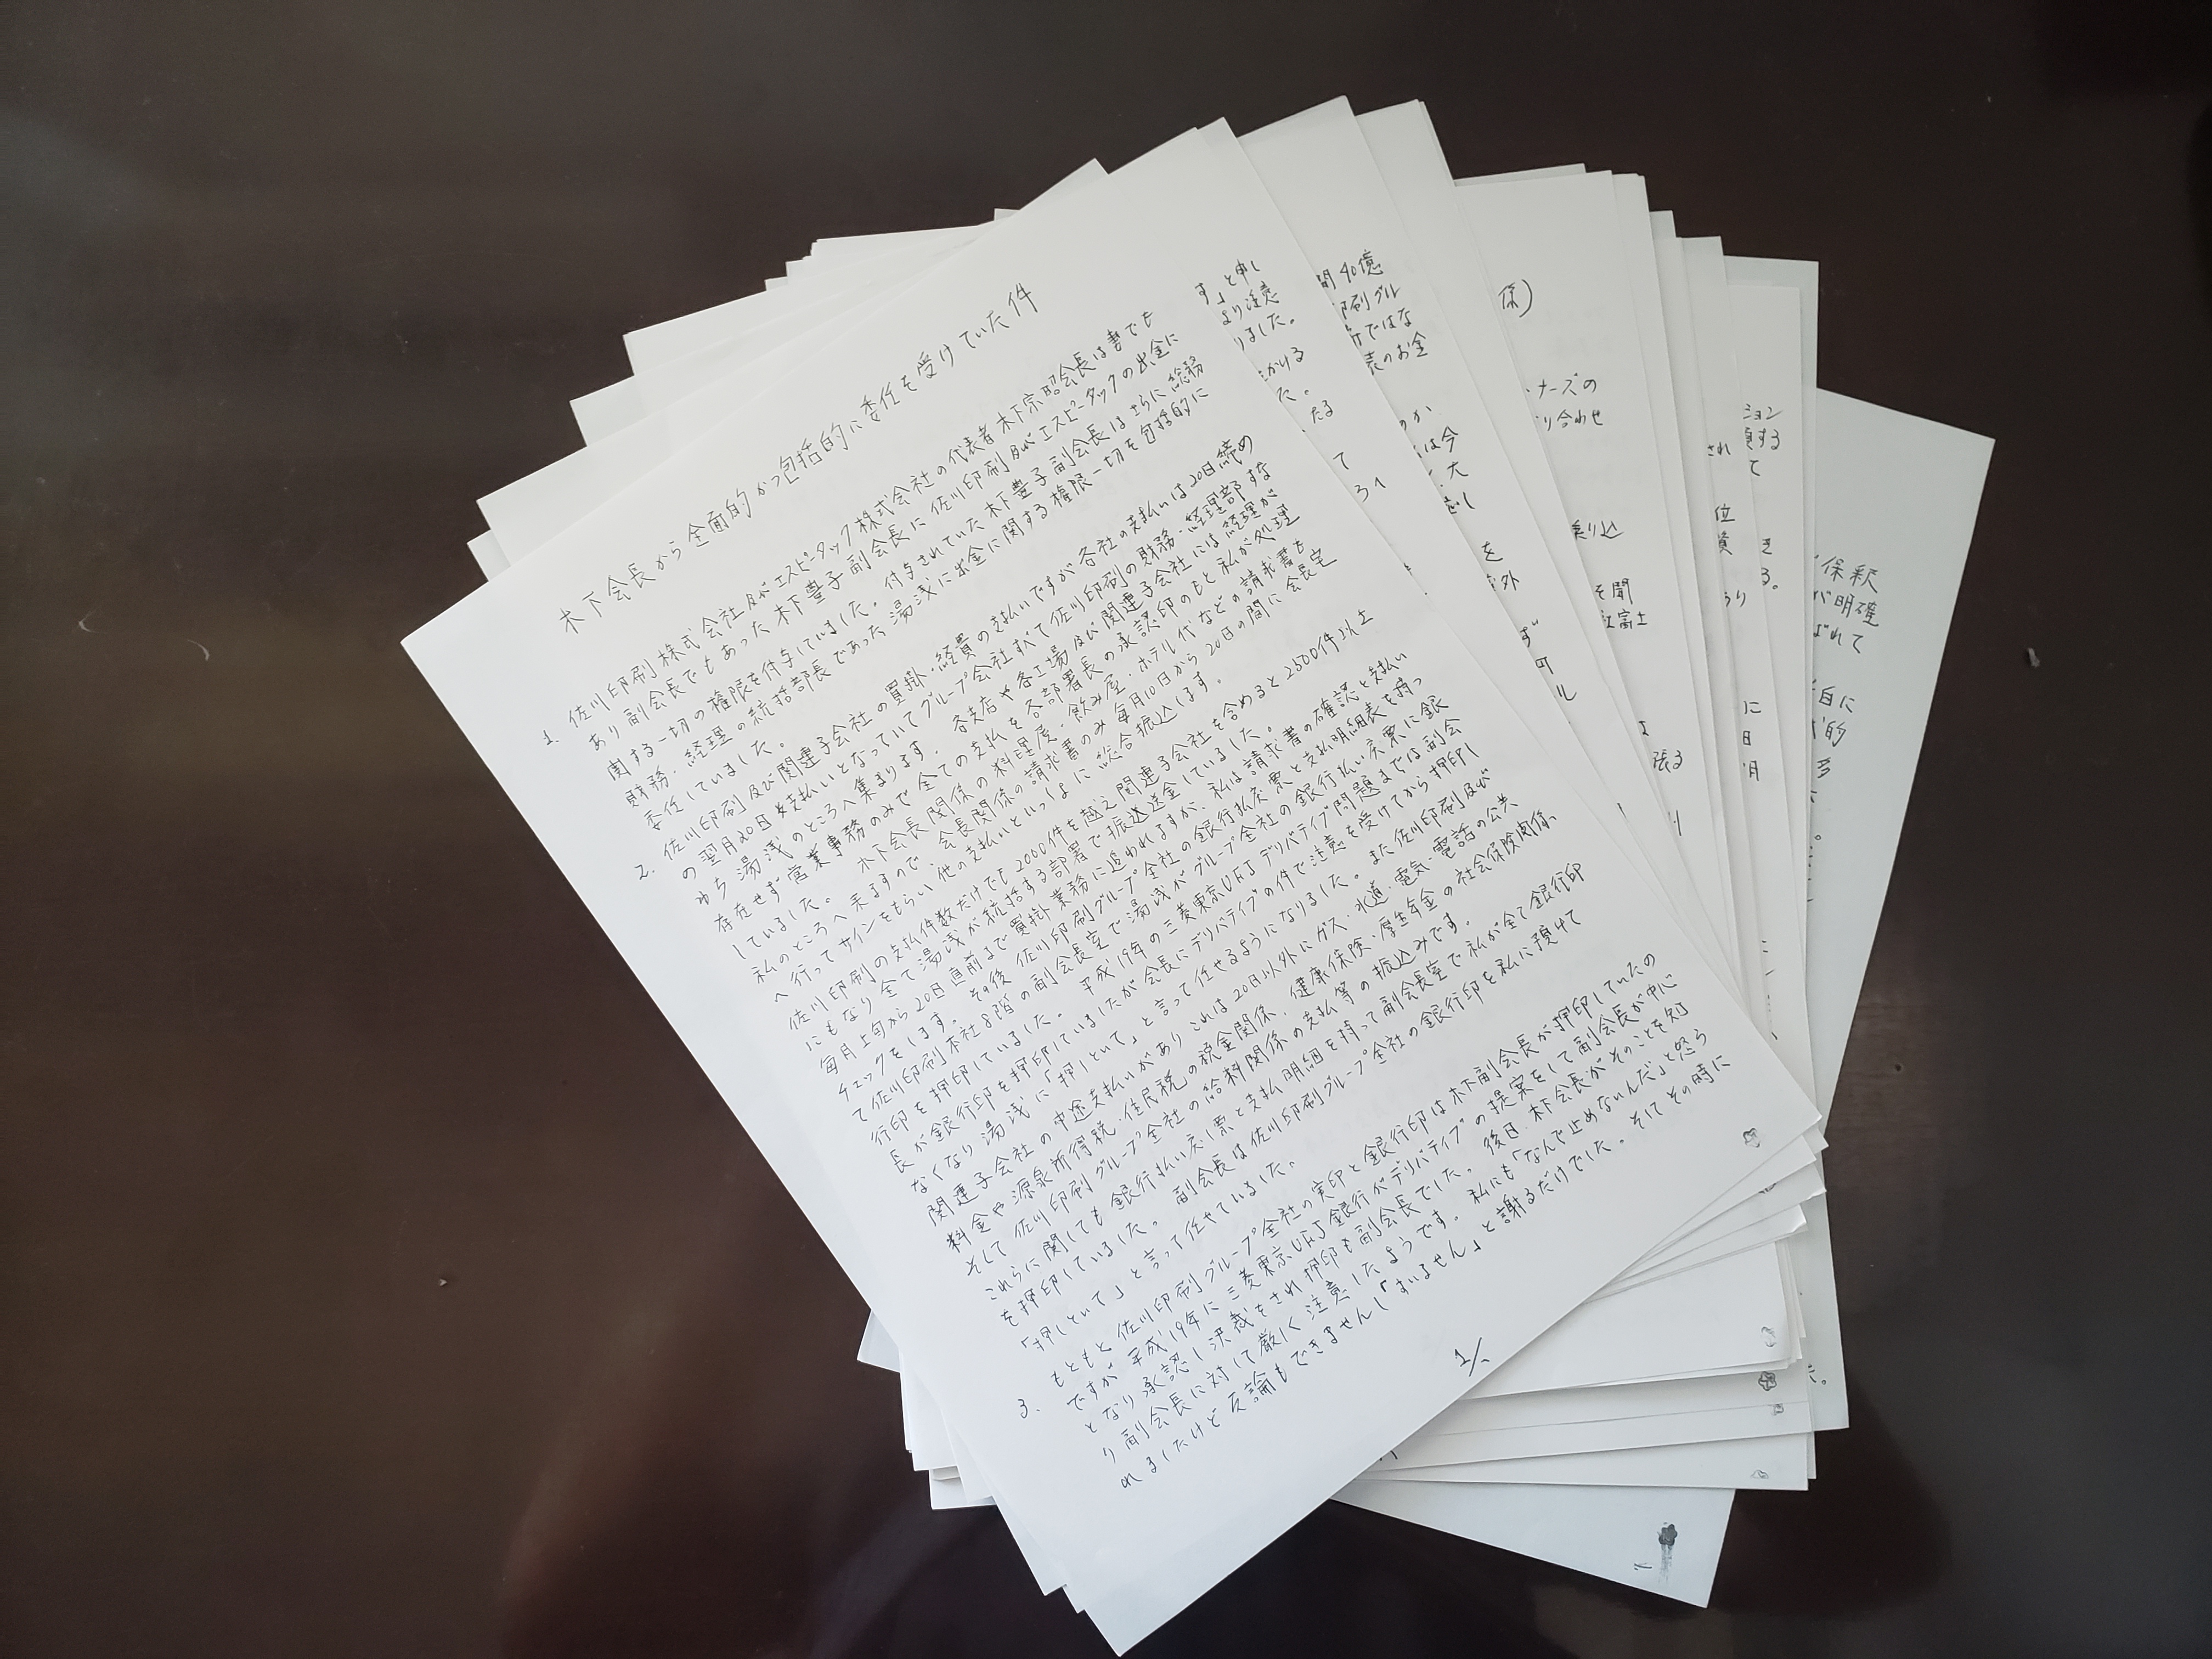 木下会長から全面的かつ包括的に委任を受けていた件
1. 佐川印刷株式会社及びエスピータック株式会社の代表者木下宗昭会長は妻でも
あり副会長でもあった木下豊子副会長に佐川印刷及びエスピータックの出金に
関する一切の権限を付与していました。付与されていた木下豊子副会長はさらに総務
財務、経理の統括部長であった湯浅に出金に関する権限一切を包括的に
委任していました。
2. 佐川印刷及び関連子会社の買掛・経費の支払いですが各社の支払いは20日締め
の翌月20日支払いとなっていてグループ会社すべて佐川印刷の財務・経理部すな
わち湯浅のところへ集まります。各支店や各工場及び関連子会社には経理が
存在せず営業事務のみで全ての支払を各部署長の承認印のもと私が処理
していました。木下会長関係の料理屋・飲み屋・ホテル代などの請求書も
私のところへ来ますので、会長関係の請求書のみ毎月10日から20日の間に会長宅
へ行ってサインをもらい他の支払いといっしょに総合振込します。
佐川印刷の支払件数だけでも2000件を越え関連子会社を含めると2500件以上
にもなり全て湯浅が統括する部署で振込送金していました。
毎月上旬から20日直前まで買掛業務に追われますが、私は請求書の確認と支払い
チェックをします。その後佐川印刷グループ全社の銀行払戻票と支払明細表を持っ
て佐川印刷本社8階の副会長室で湯浅がグループ全社の銀行払い戻票に銀
行印を押印していました。平成19年の三菱東京UFJデリバティブ問題までは副会
長が銀行印を押印していましたが会長にデリバティブの件で注意を受けてから押印し
なくなり湯浅に「押しといて」と言って任せるようになりました。また佐川印刷及び
関連子会社の中途支払いがありこれは20日以外にガス・水道・電気・電話の公共
料金や源泉所得税・住民税の税金関係、健康保険・厚生年金の社会保険関係、
そして佐川印刷グループ全社の給料関係の支払等の振込みです。
これらに関しても銀行払い戻し票と支払明細を持って副会長室で私が全て銀行印
を押印していました。副会長は佐川印刷グループ全社の銀行印を私に預けて
「押しといて」と言って任せていました。
3. もともと佐川印刷グループ全社の実印と銀行印は木下副会長が押印していたの
ですが平成19年に三菱東京UFJ銀行がデリバティブの提案をして副会長が中心
となり承認し決裁をされ押印も副会長でした。後日、木下会長がそのことを知
り副会長に対して厳しく注意したようです。私にも「なんで止めないんだ」と怒ら
れましたけど反論もできませんし「すいません」と謝るだけでした。そしてその時に
1/
す」と申し
より注意
りました。
かける
た。
たる
て
間40億
印刷グル
ではな
表のお金
のか
は今
大
を
外
係)
ナーズの
り合わせ
乗り込
を聞
富士
張る
され
位
に
日
ション
する
て
き
る。
保釈
が明確
ばれて
自に
的
た。